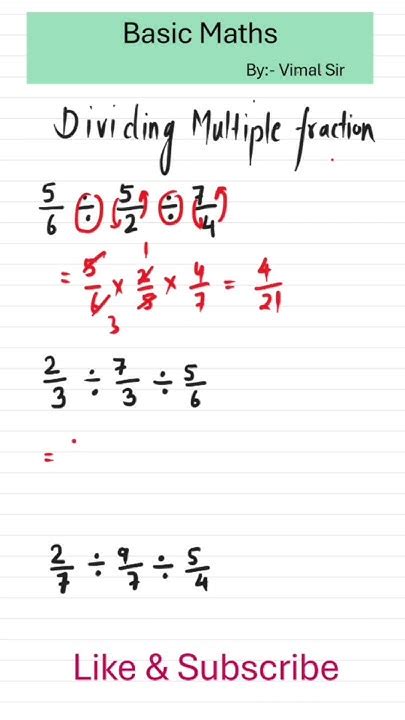 Basic Maths
By:- Vimal Sir
Dividing Multiple fraction
5/6 ÷ 5/2 ÷ 7/4
1
= 5/6 × 2/5 × 4/7 = 4/21
3
2/3 ÷ 7/3 ÷ 5/6
=
2/7 ÷ 9/7 ÷ 5/4
Like & Subscribe